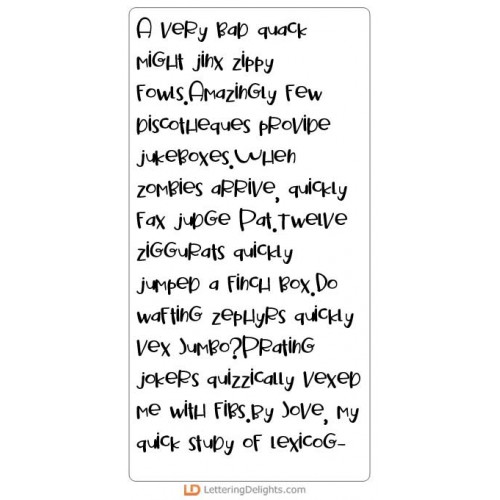 A very bad quack
might jinx zippy
fowls.Amazingly few
discotheques provide
jukeboxes.When
zombies arrive, quickly
fax judge Pat.Twelve
ziggurats quickly
jumped a finch box.Do
wafting zephyrs quickly
vex Jumbo?Prating
jokers quizzically vexed
me with fibs.By Jove, my
quick study of lexicog-
LD LetteringDelights.com